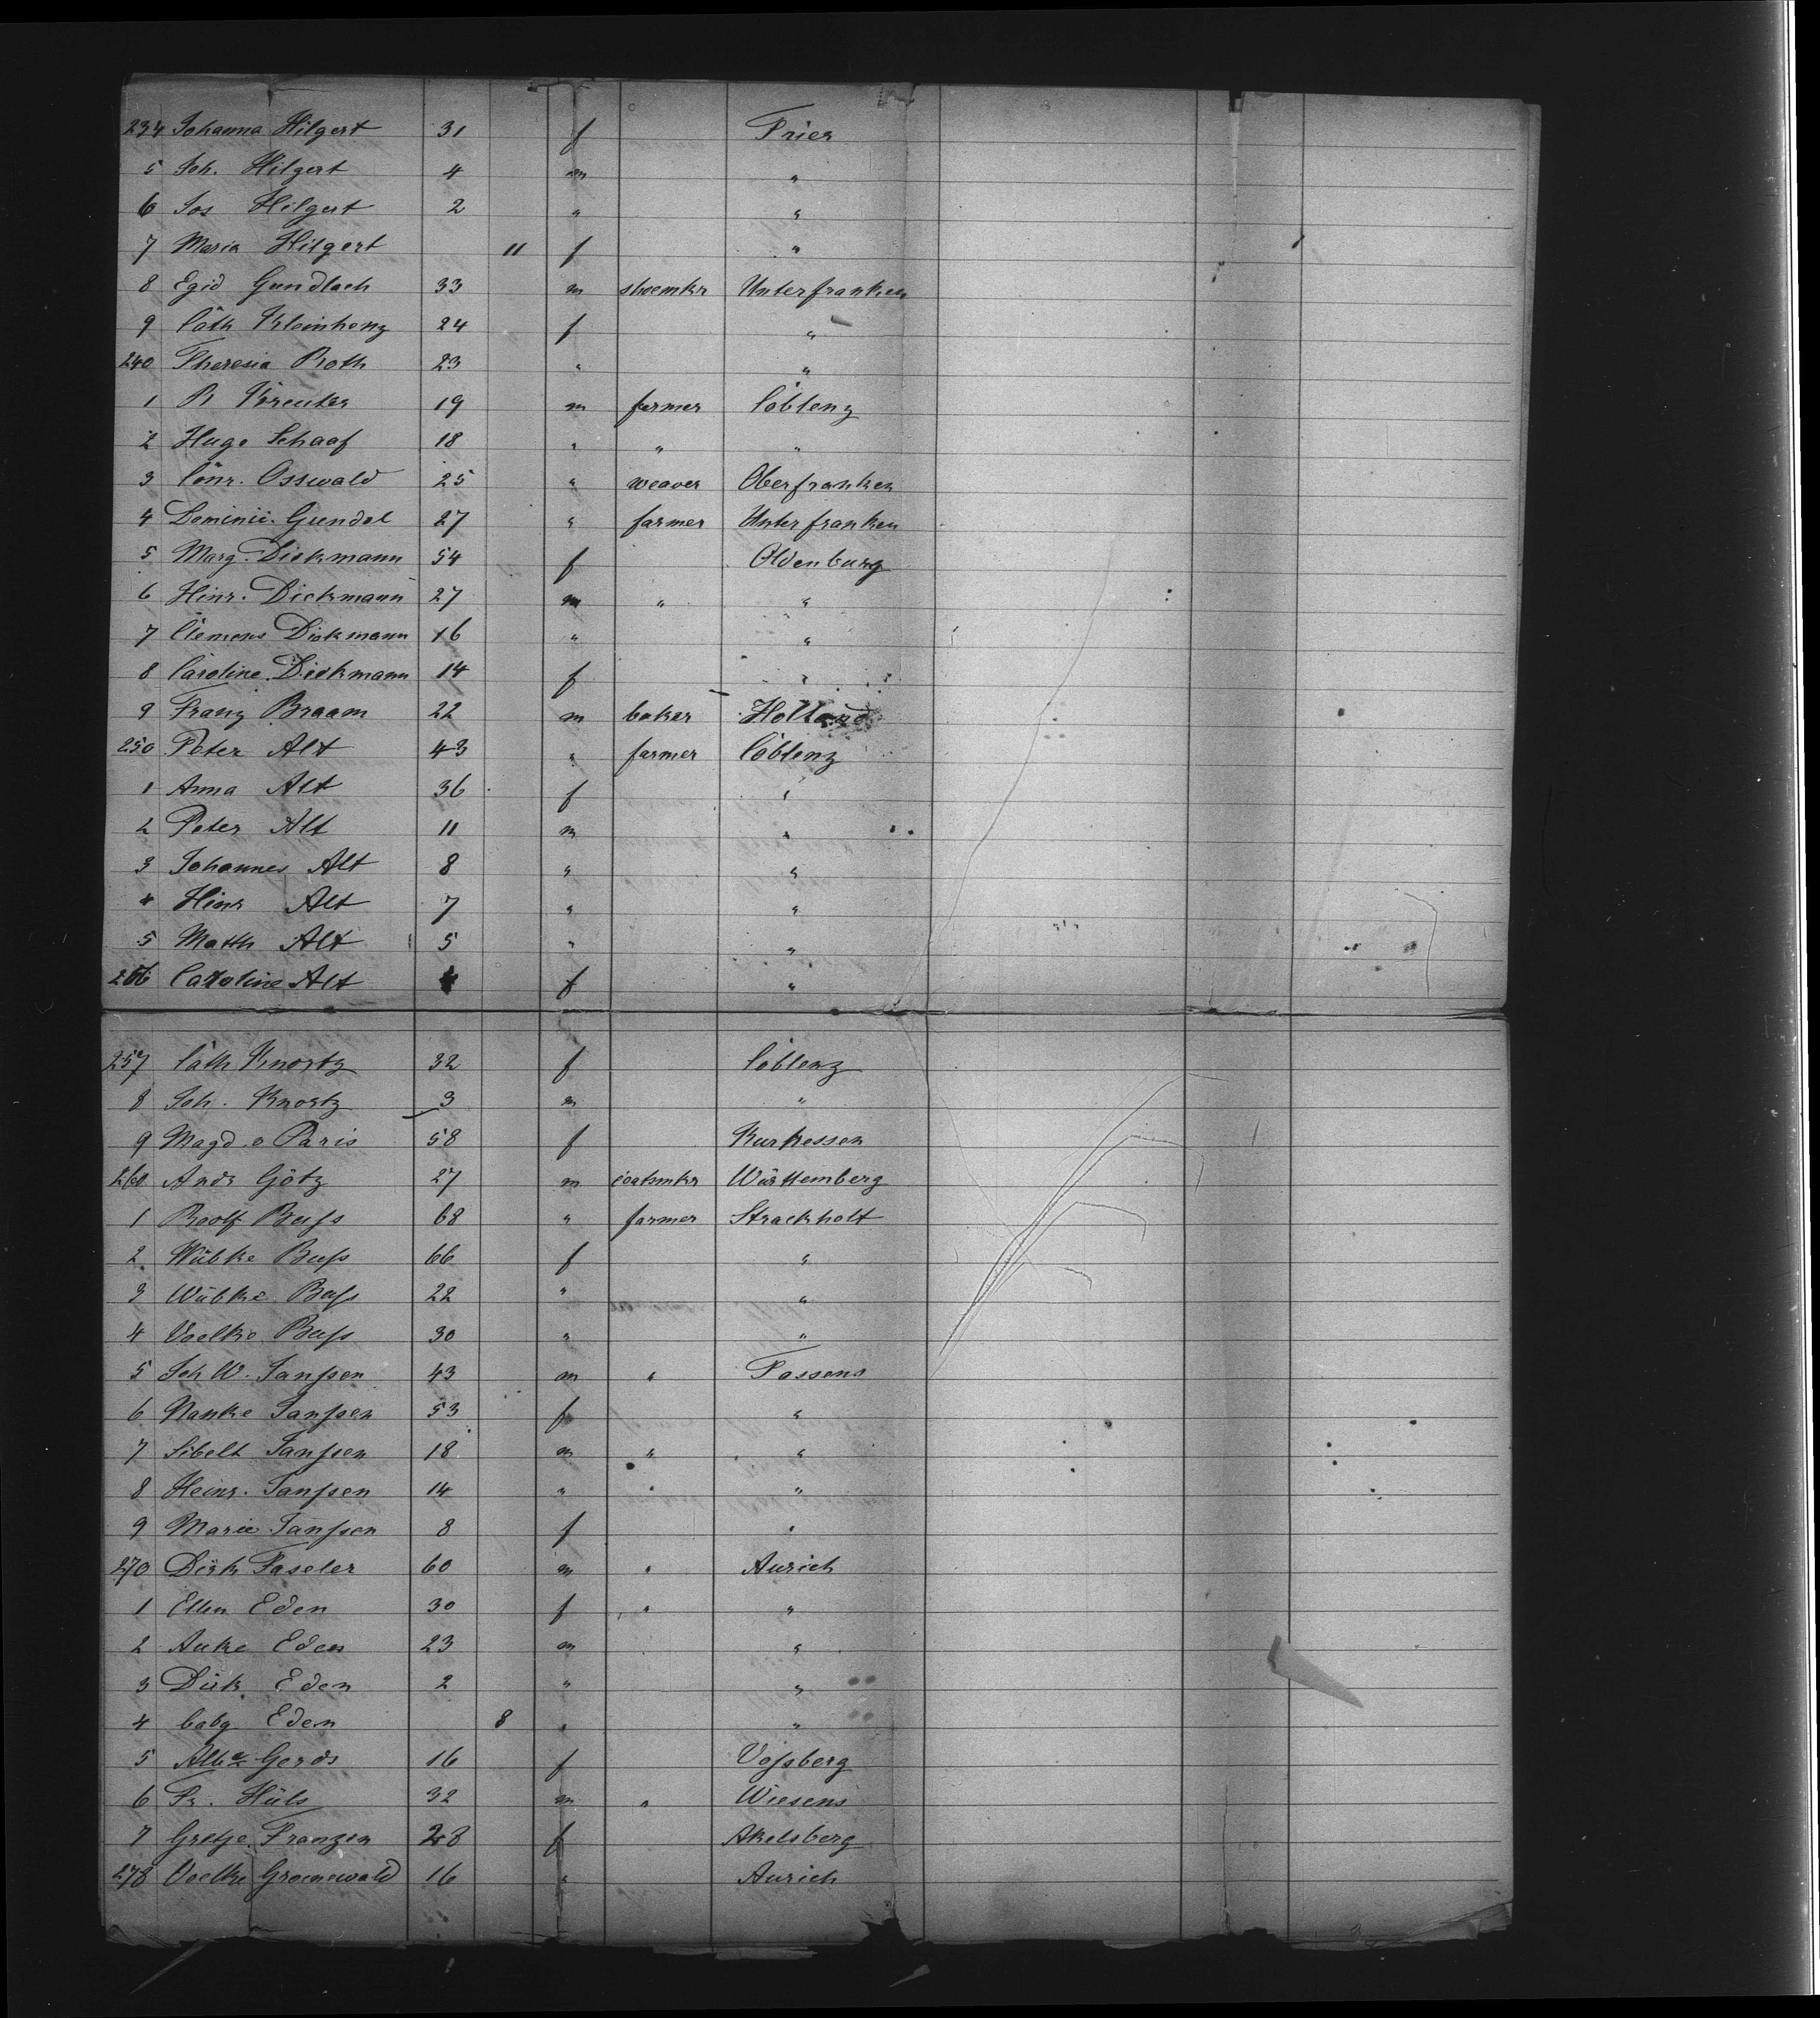 234 Johanna Hilgert 31 f Trier
5 Joh. Hilgert 4 m "
6 Jos Hilgert 2 " "
7 Maria Hilgert 11 f "
8 Egid Gundlach 33 m shoemkr Unterfranken
9 Cath Kleinhenz 24 f "
240 Theresia Roth 23 " "
1 P. Kreuter 19 m farmer Coblenz
2 Hugo Schaaf 18 " " "
3 Conr. Osswald 25 " weaver Oberfranken
4 Gundel 27 " farmer Unterfranken
5 Marg. Diekmann 54 f Oldenburg
6 Hinr. Diekmann 27 m " "
7 Clemens Diekmann 16 " "
8 Caroline Diekmann 14 f "
9 Franz Braam 22 m baker Holland
250 Peter Alt 43 " farmer Coblenz
1 Anna Alt 36 f "
2 Peter Alt 11 m "
3 Johannes Alt 8 " "
4 Hinr Alt 7 " "
5 Matth Alt 5 " "
256 Caroline Alt 4 f "
257 Cath Knortz 32 f Coblenz
8 Joh. Knortz 3 m "
9 Magd. Paris 58 f Kurhessen
260 Andr Götz 27 m Württemberg
1 Roolf Buss 68 " farmer Strackholt
2 Wübke Buss 66 f "
3 Wübke Buss 22 " "
4 Voelke Buss 30 " "
5 Joh W. Janssen 43 m " Fassens
6 Nanke Janssen 53 f "
7 Sibelt Janssen 18 m " "
8 Heinr. Janssen 14 " " "
9 Marie Janssen 8 f "
270 Dirk Faseler 60 m " Aurich
1 Ellen Eden 30 f " "
2 Auke Eden 23 m "
3 Dirk Eden 2 " "
4 baby Eden 8 " "
5 Gerds 16 f Vossberg
6 Fr. Hüls 32 m " Wiesens
7 Gretje Franzen 28 f Akelsberg
278 Voelke Groenewald 16 " Aurich